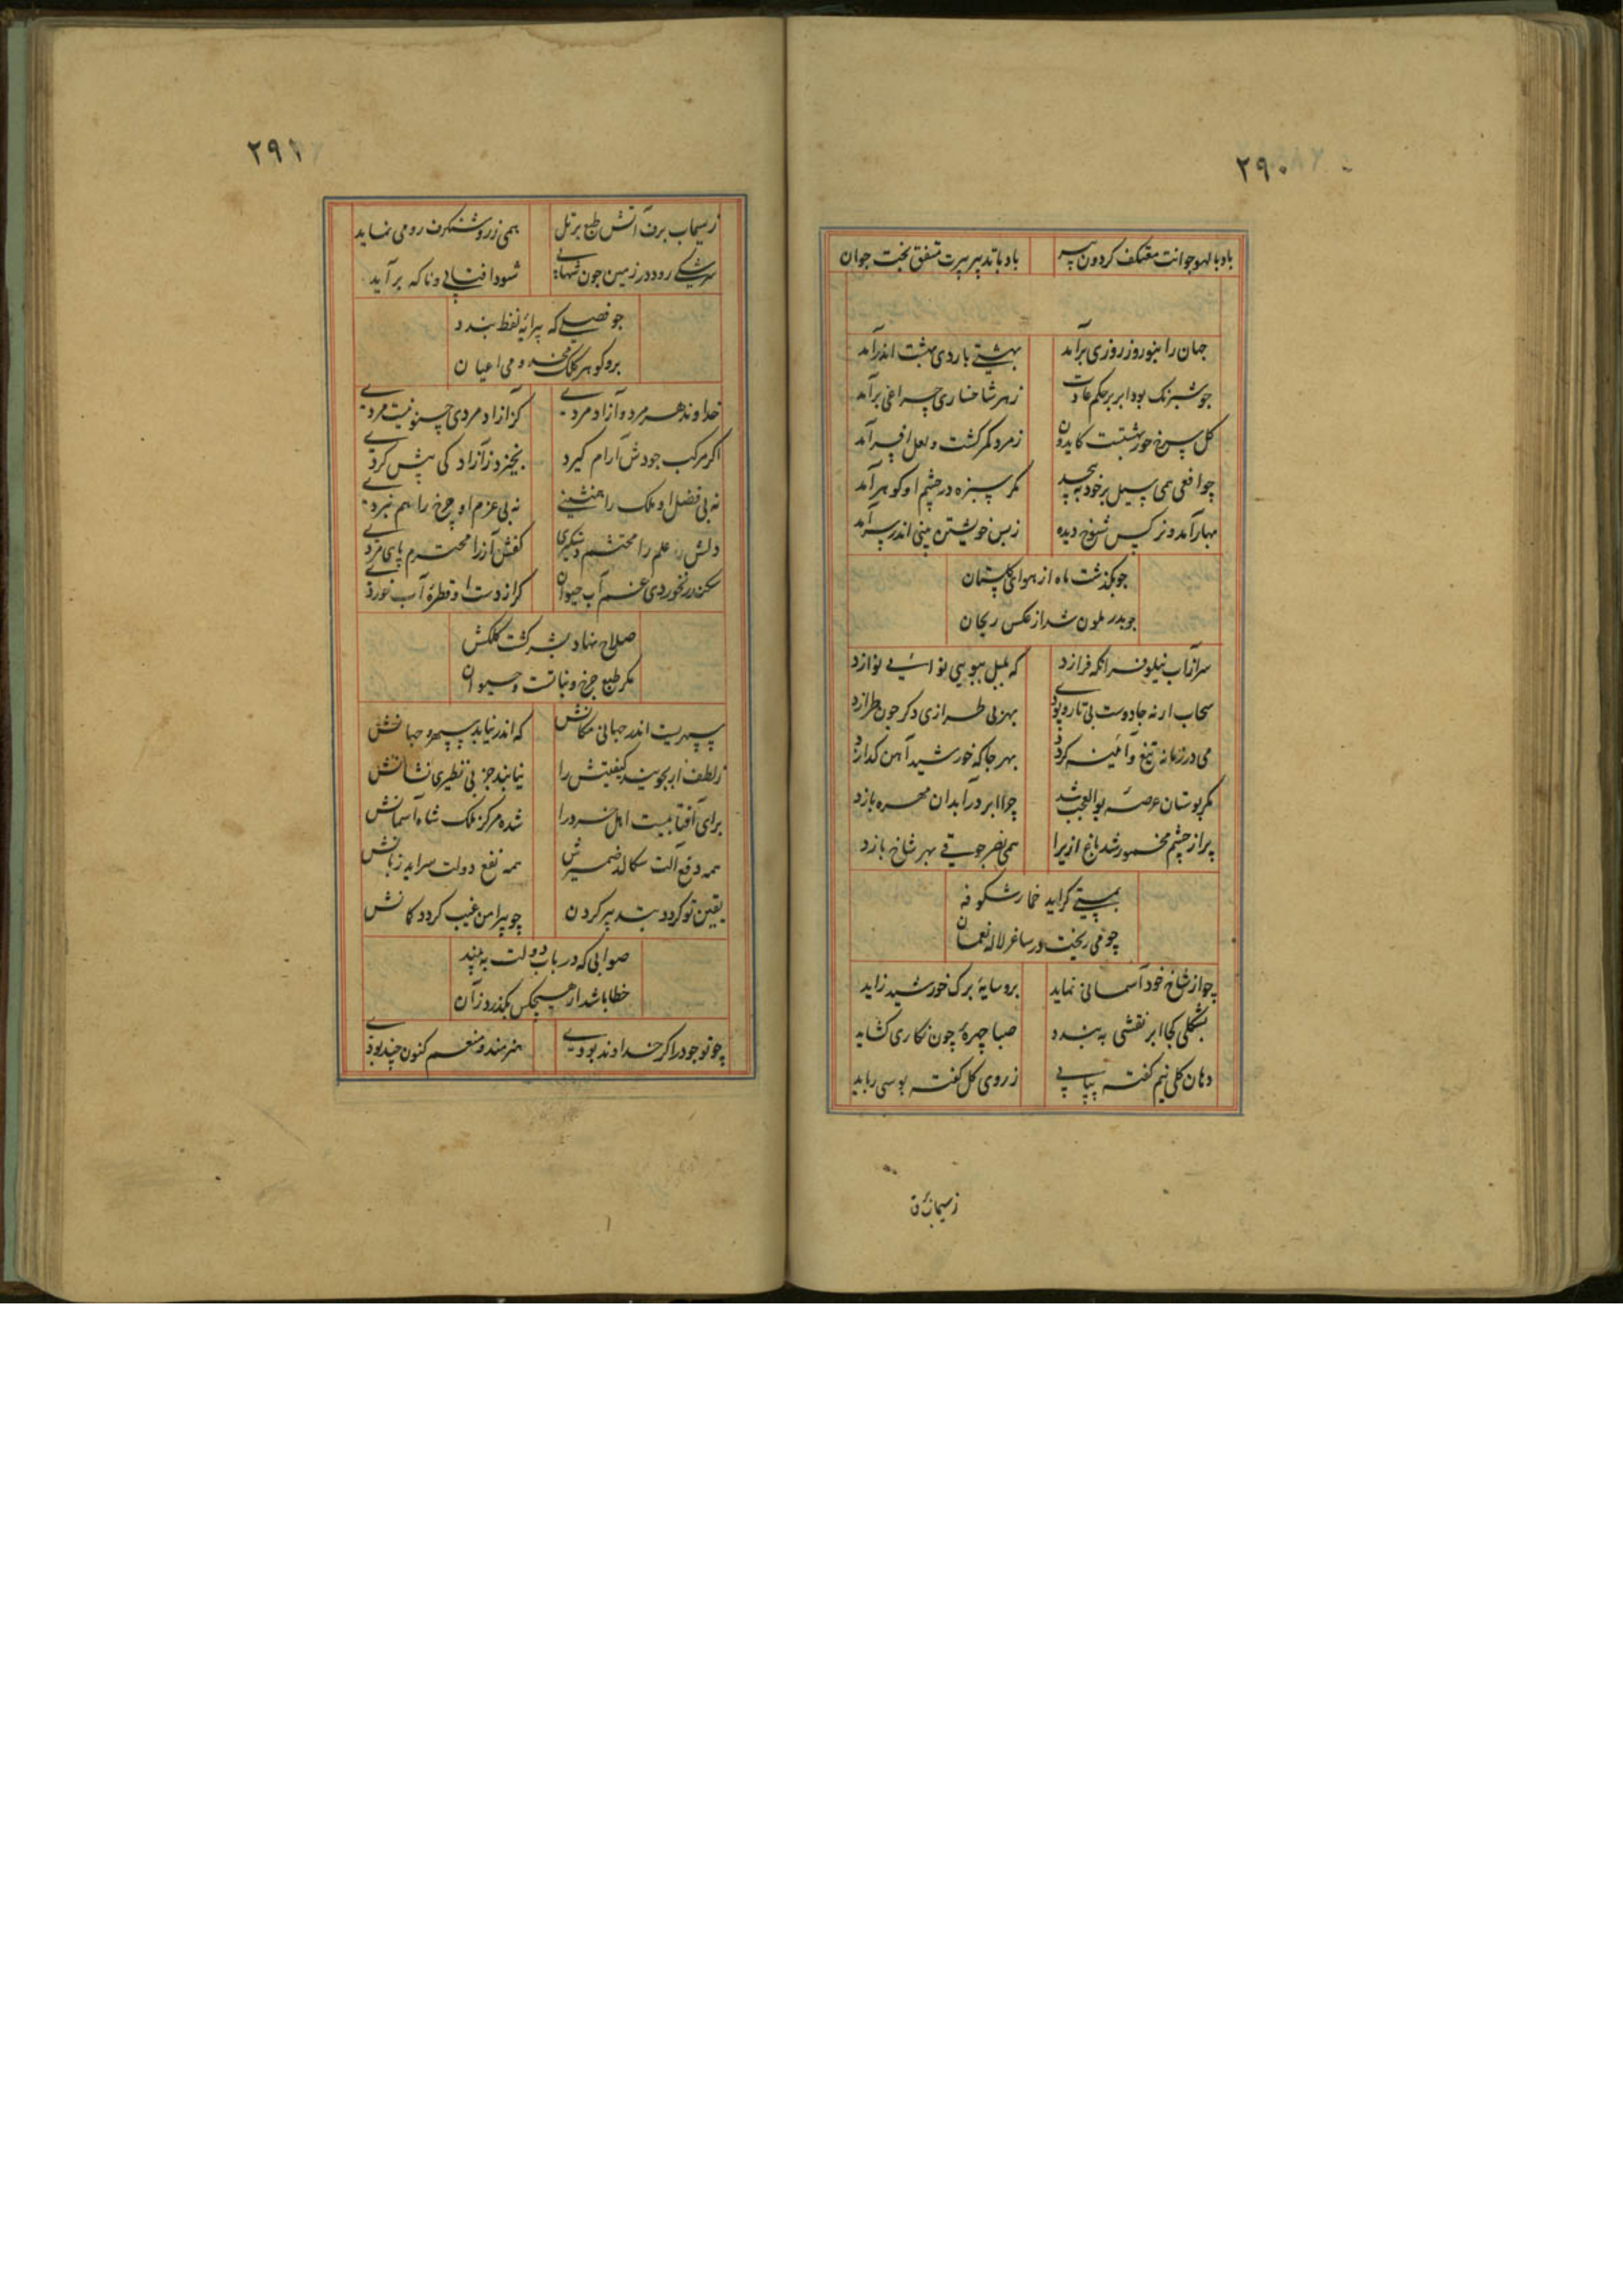 ۲۹۰
باد با لهو جوانت معتکف کردون پیر باد با تدبیر پیرت متفق بخت جوان
جهان را بنوروز روزی برآمد بهشتی باردی بهشت اندرآمد
جو شبرنک بود ابر بر حکم عادت زهر شاخساری چراغی برآمد
کل سرخ خورشیدست کایدون زمرد کمر کشت و لعل افسر آمد
چو افعی همی سیل برخود به پیچد مکر سبزه در چشم او کوهر آمد
بهار آمد و نرکس شوخ دیده زبس خویشتن بینی اندر سر آمد
جو بکذشت ماه از هوای کلستان
جو بدر ملون شد از عکس ریحان
سر از آب نیلوفر انکه فرازد که بلبل ببویی نوائی نوازد
سحاب ار نه جادوست بی تار و پودی بهر بی طرازی دکر جون طرازد
می در زمانه تیغ و آئینه کردد بهر جا که خورشید آهن کدازد
مکر بوستان عرصه بوالعجب شد چو ابر در آبدان مهره بازد
پر از چشم مخمور شد باغ ازیرا همی نصر جوقی بهر شاخ بازد
بمستی کراید خمار شکوفه
چو می ریخت در ساغر لاله نعمان
چو از شاخ خود آسمانی نماید برو سایهٔ برک خورشید زاید
بشکلی کجا ابر نقشی به بندد صبا چهرهٔ چون نکاری کشاید
دهان کلی نیم کفته پیاپی ز روی کل کفته بوسی رباید
ز سیماب برف
۲۹۱
ز سیماب برف آتش طبع بر تل همی زر و شنکرف رومی نماید
سرشکی رود در زمین جون شهابی شود افتابی وناکه برآید
جو فصلی که پیرایه لفظ بندد
برو کوهر کلک مخدومی اعیان
خداوند هر مرد و آزاد مردی کز ازاد مردی چنو نیست مردی
اکر مرکب جودش آرام کیرد نخیزد ز آزاد کی پیش کردی
نه بی فضل او ملک را همنشینی نه بی عزم او چرخ را هم نبردی
دلش علم را محتشم دستکیری کفش آز را محترم پای مردی
سکندر نخوردی غم آب حیوان کر از دست او قطرهٔ آب خوردی
صلاح نهاد بشر کشت کلکش
مکر طبع چرخ و نباتست و حیوان
سپهریست اندر جهانی مکانش که اندر نیابد سپهر و جهانش
ز لطف ار بجویند کیفیتش را نیابند جز بی نظیری نشانش
برای آفتابیست اهل خرد را شده مرکز ملک شاه آسمانش
همه دفع آلت سکالد ضمیرش همه نفع دولت سراید زبانش
یقین تو کردد بتدبیر کردن چو پیرامن غیب کردد کمانش
صوابی که در باب دولت به بیند
خطا باشد ار هیچکس بکذرد زآن
چو تو جود را کر خداوند بودی هنرمند و منعم کنون چند بودی